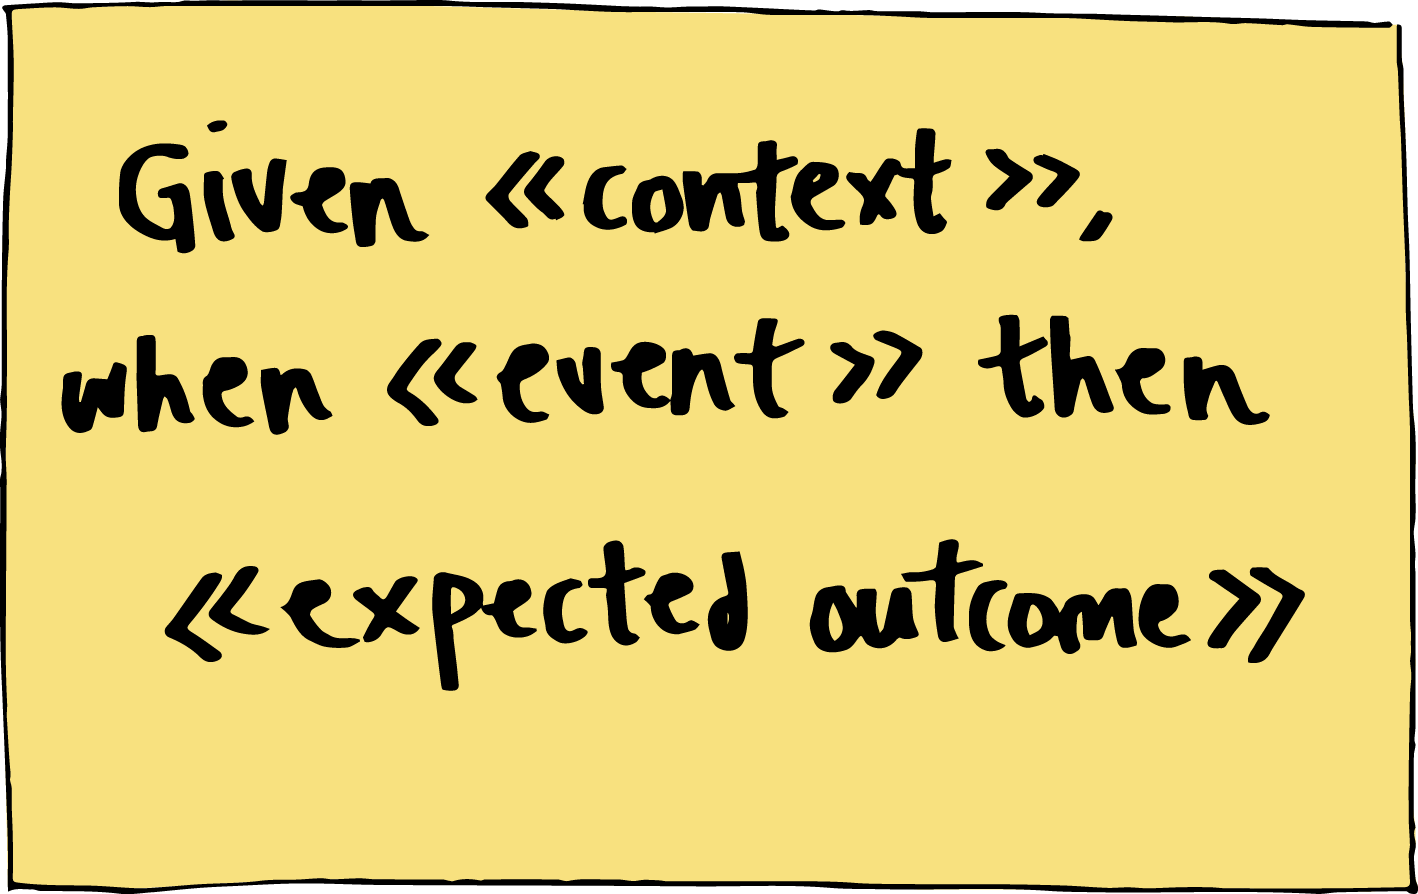 Given «context»,
when «event» then
«expected outcome»